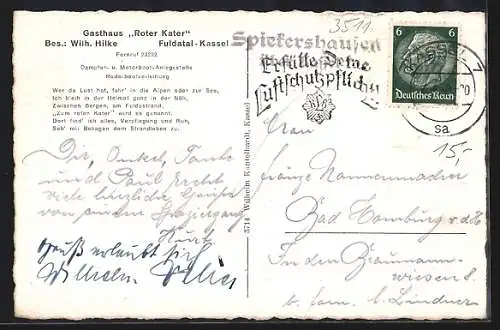 Gasthaus „Roter Kater"
Bes.: Wilh. Hilke Fuldatal-Kassel
Fernruf 23292
Dampfer- u. Motorboot-Anlegestelle
Ruderbootverleihung
Wer da Lust hat, fahr' in die Alpen oder zur See,
Ich bleib in der Heimat ganz in der Näh,
Zwischen Bergen, am Fuldastrand,
"Zum roten Kater" wird es genannt.
Dort find' ich alles, Verpflegung und Ruh,
Seh' mit Behagen dem Strandleben zu.
Dir, Onkel, Tante
und Paul
viele herzliche Grüße
von einem Spaziergang
Kurt
Gruß erlaubt sich
Wilhelm
3714 Wilhelm Kunstelhardt, Kassel
3511
Spiekershausen
Erfülle Deine
Luftschutzpflicht
6 6
Deutsches Reich
sa
15,-
Frau
Nannenmacher
Bad Homburg v.d.H.
In den Braumann-
wiesen 8
b. Fam. L. Lindner